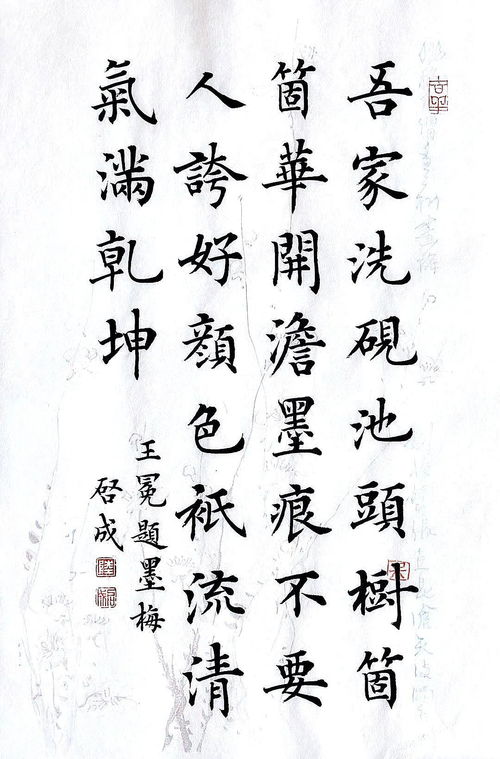 吾家洗硯池頭樹箇
箇華開澹墨痕不要
人誇好顔色衹流清
氣滿乾坤
王冕題墨梅
啓成